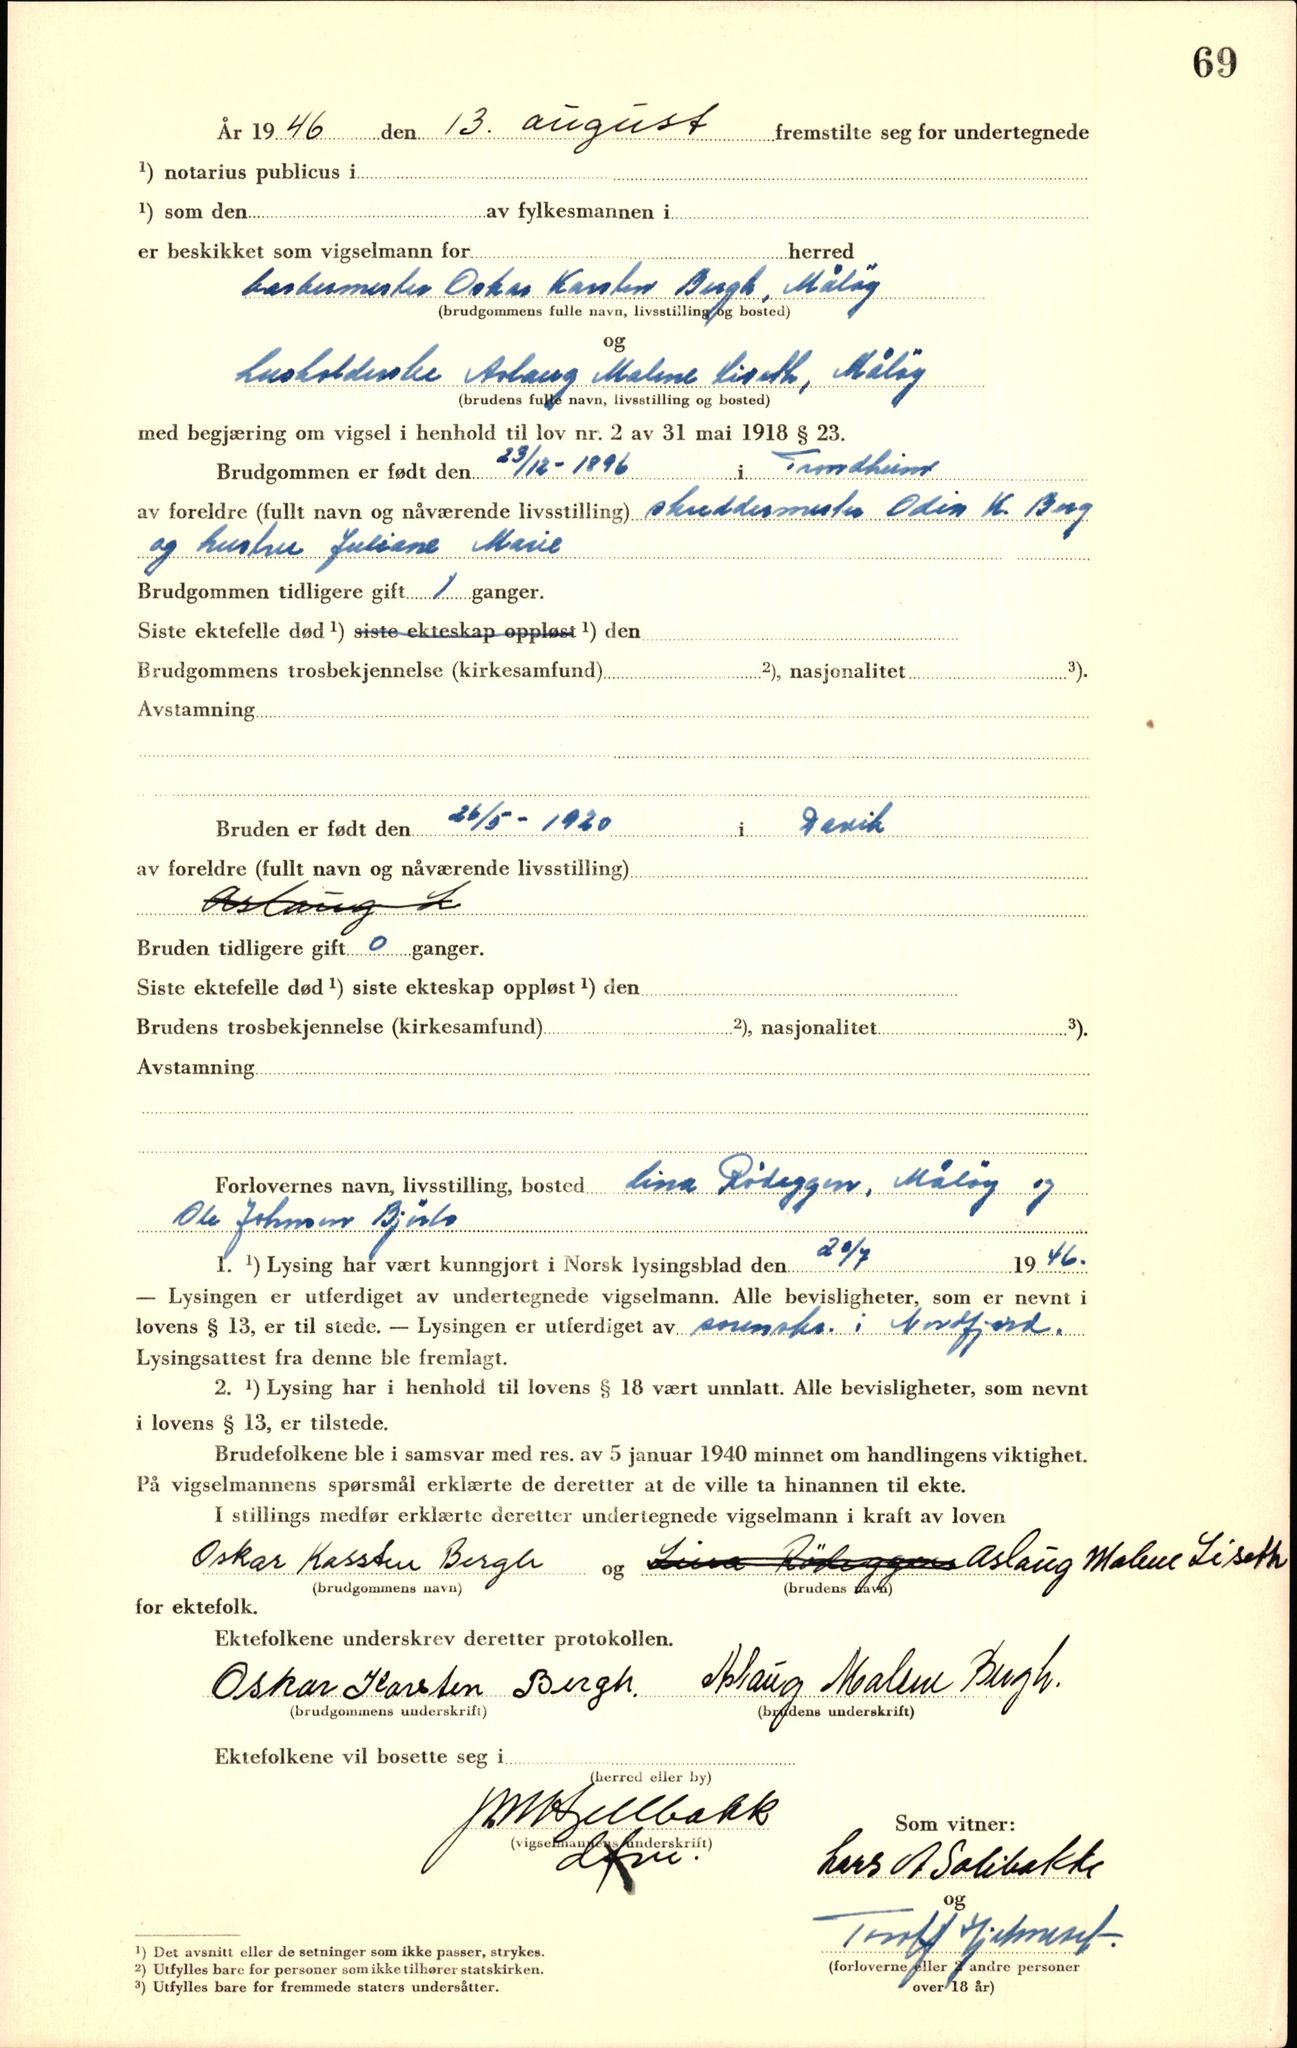 69
År 19 46 den 13. august fremstilte seg for undertegnede
¹) notarius publicus i
¹) som den av fylkesmannen i
er beskikket som vigselmann for herred
barbermester Oskar Karsten Bergh, Måløy
(brudgommens fulle navn, livsstilling og bosted)
og
husholderske Aslaug Malene Liseth, Måløy
(brudens fulle navn, livsstilling og bosted)
med begjæring om vigsel i henhold til lov nr. 2 av 31 mai 1918 § 23.
Brudgommen er født den 23/12 - 1896 i Trondheim
av foreldre (fullt navn og nåværende livsstilling) skreddermester Odin K. Berg
og hustru Juliane Marie
Brudgommen tidligere gift 1 ganger.
Siste ektefelle død ¹) siste ekteskap oppløst ¹) den
Brudgommens trosbekjennelse (kirkesamfund) ²), nasjonalitet ³).
Avstamning
Bruden er født den 26/5 - 1920 i Davik
av foreldre (fullt navn og nåværende livsstilling)
Aslaug L
Bruden tidligere gift 0 ganger.
Siste ektefelle død ¹) siste ekteskap oppløst ¹) den
Brudens trosbekjennelse (kirkesamfund) ²), nasjonalitet ³).
Avstamning
Forlovernes navn, livsstilling, bosted Lina Rödeggen, Måløy og
Ole Johnsen Björlo
1. ¹) Lysing har vært kunngjort i Norsk lysingsblad den 20/7 19 46.
— Lysingen er utferdiget av undertegnede vigselmann. Alle bevisligheter, som er nevnt i
lovens § 13, er til stede. — Lysingen er utferdiget av sorenskr. i Nordfjord.
Lysingsattest fra denne ble fremlagt.
2. ¹) Lysing har i henhold til lovens § 18 vært unnlatt. Alle bevisligheter, som nevnt
i lovens § 13, er tilstede.
Brudefolkene ble i samsvar med res. av 5 januar 1940 minnet om handlingens viktighet.
På vigselmannens spørsmål erklærte de deretter at de ville ta hinannen til ekte.
I stillings medfør erklærte deretter undertegnede vigselmann i kraft av loven
Oskar Karsten Bergh og Lina Rödeggen Aslaug Malene Liseth
(brudgommens navn) (brudens navn)
for ektefolk.
Ektefolkene underskrev deretter protokollen.
Oskar Karsten Bergh. Aslaug Malene Bergh.
(brudgommens underskrift) (brudens underskrift)
Ektefolkene vil bosette seg i
(herred eller by)
(vigselmannens underskrift)
Som vitner:
Lars A Solibakke
og
(forloverne eller 2 andre personer
over 18 år)
¹) Det avsnitt eller de setninger som ikke passer, strykes.
²) Utfylles bare for personer som ikke tilhører statskirken.
³) Utfylles bare for fremmede staters undersåtter.